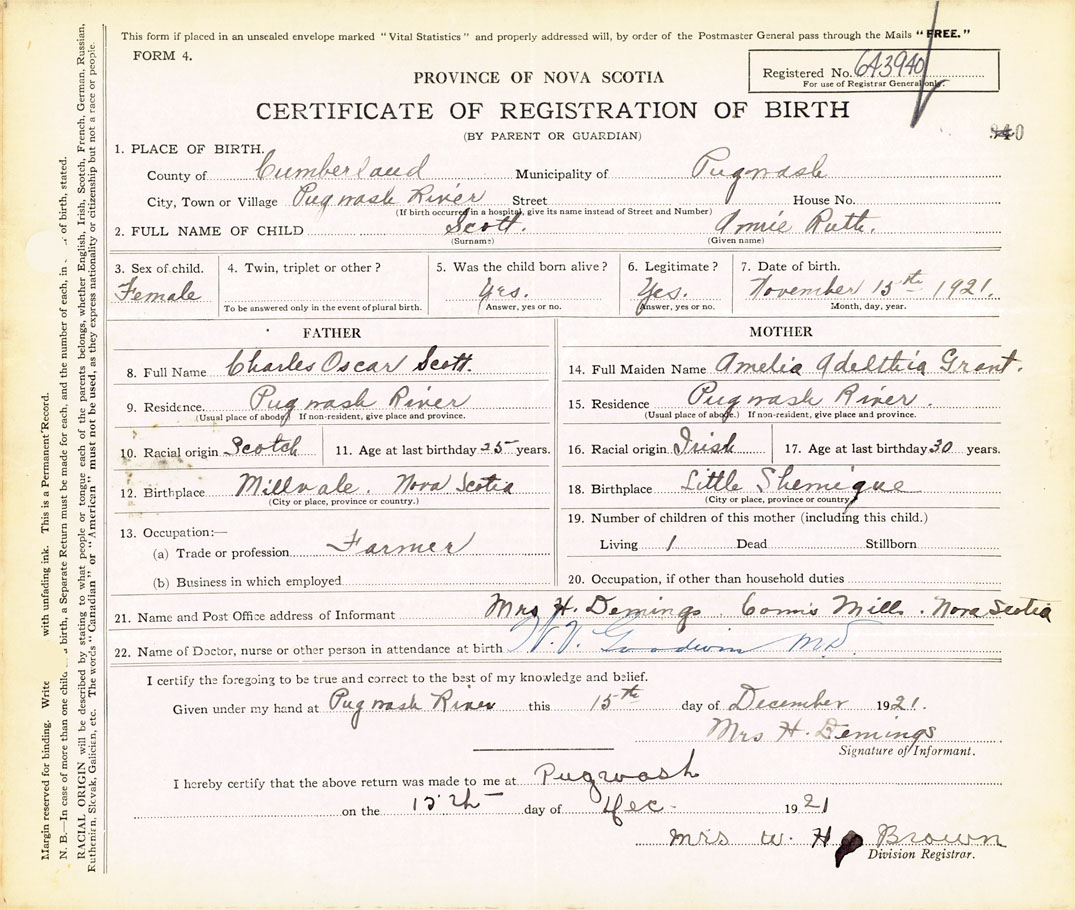 This form if placed in an unsealed envelope marked "Vital Statistics" and properly addressed will, by order of the Postmaster General pass through the Mails "FREE."
FORM 4.
Registered No. 643940
For use of Registrar General only.
PROVINCE OF NOVA SCOTIA
CERTIFICATE OF REGISTRATION OF BIRTH
(BY PARENT OR GUARDIAN)
940
1. PLACE OF BIRTH.
County of Cumberland Municipality of Pugwash
City, Town or Village Pugwash River Street House No.
(If birth occurred in a hospital, give its name instead of Street and Number)
2. FULL NAME OF CHILD Scott. Annie Ruth.
(Surname) (Given name)
3. Sex of child. 4. Twin, triplet or other? 5. Was the child born alive? 6. Legitimate? 7. Date of birth.
Female Yes. Yes. November 15th 1921.
To be answered only in the event of plural birth. (Answer, yes or no.) (Answer, yes or no.) Month, day, year.
FATHER
8. Full Name Charles Oscar Scott.
9. Residence. Pugwash River
(Usual place of abode.) If non-resident, give place and province.
10. Racial origin Scotch 11. Age at last birthday 35 years.
12. Birthplace Millvale. Nova Scotia
(City or place, province or country.)
13. Occupation:—
(a) Trade or profession Farmer
(b) Business in which employed
MOTHER
14. Full Maiden Name Amelia Adelthia Grant.
15. Residence Pugwash River.
(Usual place of abode.) If non-resident, give place and province.
16. Racial origin Irish 17. Age at last birthday 30 years.
18. Birthplace Little Shemigue
(City or place, province or country)
19. Number of children of this mother (including this child.)
Living 1 Dead Stillborn
20. Occupation, if other than household duties
21. Name and Post Office address of Informant Mrs H. Demings. Conns Mills. Nova Scotia
22. Name of Doctor, nurse or other person in attendance at birth Goodwin MD.
I certify the foregoing to be true and correct to the best of my knowledge and belief.
Given under my hand at Pugwash River this 15th day of December 1921.
Mrs H. Demings
Signature of Informant.
I hereby certify that the above return was made to me at Pugwash
on the 15th day of Dec. 1921
Mrs W. H. Brown
Division Registrar.
Margin reserved for binding. Write with unfading ink. This is a Permanent Record.
N. B.—In case of more than one child birth, a Separate Return must be made for each, and the number of each, in of birth, stated.
RACIAL ORIGIN will be described by stating to what people or tongue each of the parents belongs, whether English, Irish, Scotch, French, German, Russian,
Ruthenian, Slovak, Galician, etc. The words "Canadian" or "American" must not be used, as they express nationality or citizenship but not a race or people.